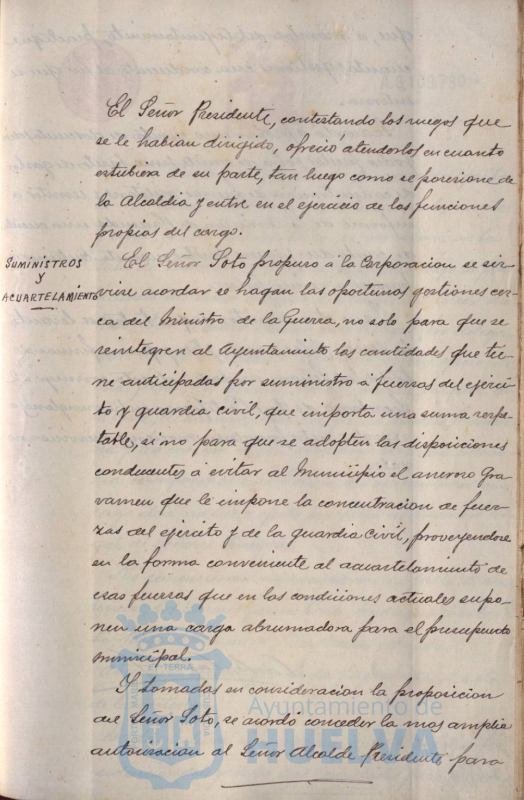 El Señor Presidente, contestando los ruegos que
se le habian dirijido, ofreció atenderlos en cuanto
estubiera de su parte, tan luego como se posesione de
la Alcaldia y entre en el ejercicio de las funciones
propias del cargo.
SUMINISTROS
Y
ACUARTELAMIENTO
El Señor Soto propuso á la Corporacion se sir-
viese acordar se hagan las oportunas gestiones cer-
ca del Ministro de la Guerra, no solo para que se
reintegren al Ayuntamiento las cantidades que tie-
ne anticipadas por suministro á fuerzas del ejérci-
to y guardia civil, que importa una suma respe-
table, si no para que se adopten las disposiciones
conducentes á evitar al Municipio el oneroso gra-
vamen que le impone la concentracion de fuer-
zas del ejército y de la guardia civil, proveyendose
en la forma conveniente al acuartelamiento de
esas fuerzas que en las condiciones actuales supo-
nen una carga abrumadora para el presupuesto
municipal.
Y tomadas en consideracion la proposicion
del Señor Soto, se acordó conceder la mas amplia
autorizacion al Señor Alcalde Presidente para
Ayuntamiento de
HUELVA